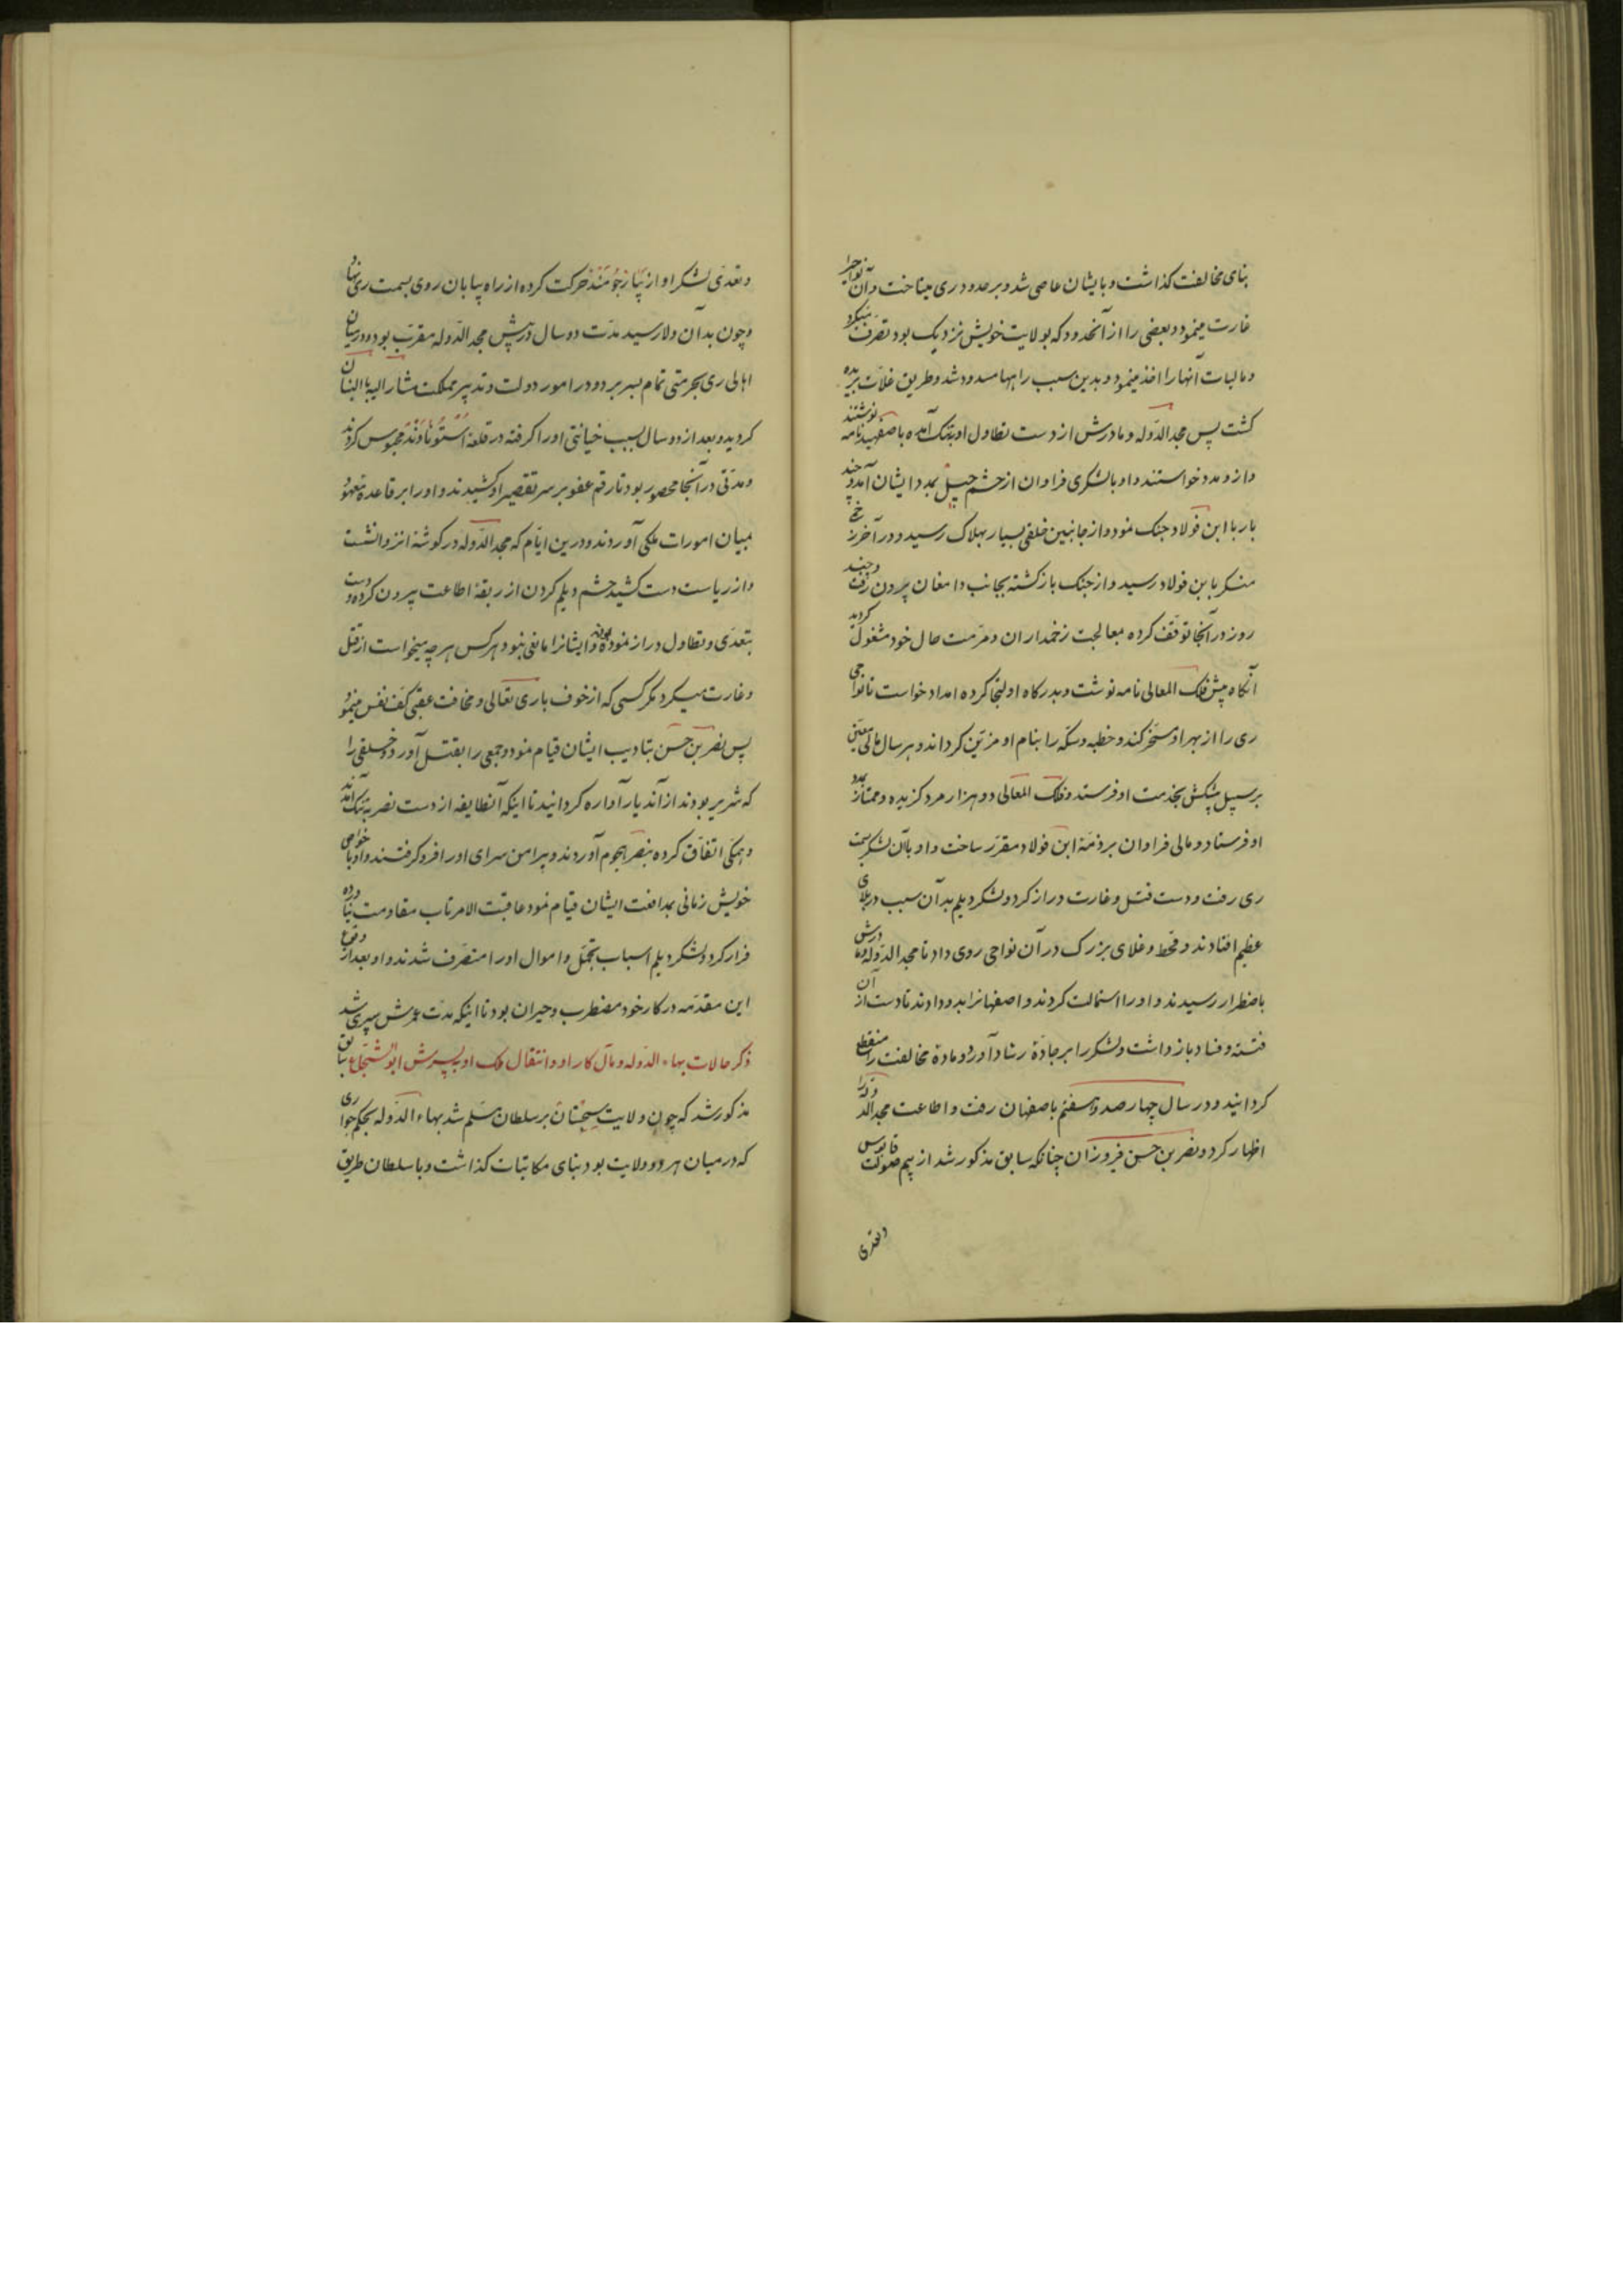 بنای مخالفت کذاشت و با یشان عاصی شد و بر حدود ری میتاخت و آن نواحی را
غارت مینمود و بعضی را از آنحدود که بولایت خویش نزدیک بود تصرف میکرد
و مالیات آنها را اخذ مینمود و بدین سبب راهها مسدود شد و طریق غلات بریده
کشت پس مجد الدوله و مادرش از دست تطاول او بتنک آمده باصفهبد نامه نوشتند
و از و مدد خواستند و او با لشکری فراوان از حشم جیل بمدد ایشان آمد و چند
بار با ابن فولاد جنک نمود و از جانبین خلقی بسیار بهلاک رسید و در آخر زخمی
منکر بابن فولاد رسید و از جنک بازکشته بجانب دامغان بیرون رفت و چند
روز در آنجا توقف کرده بمعالجت زخمداران و مرمت حال خود مشغول کردید
آنکاه پیش فلک المعالی نامه نوشت و بدرکاه او التجا کرده امداد خواست تا نواحی
ری را از بهر او مسخر کند و خطبه و سکه را بنام او مزین کرداند و هر سال مالی معین
بر سبیل پیشکش بخدمت او فرستد و فلک المعالی دو هزار مرد کزیده و ممتاز بمدد
او فرستاد و مالی فراوان بر ذمه ابن فولاد مقرر ساخت و او باآن لشکر بسمت
ری رفت و دست قتل و غارت دراز کرد و لشکر دیلم بدآن سبب در بلای
عظیم افتادند و قحط و غلای بزرک در آن نواحی روی داد تا مجد الدوله و مادرش
باضطرار رسیدند و او را استمالت کردند و اصفهانرا بدو دادند تا دست از آن
فتنه و فساد باز داشت و لشکر را بر جادة رشاد آورد و مادة مخالفت را منقطع
کردانید و در سال چهار صد و هفتم باصفهان رفت و اطاعت مجد الدوله را
اظهار کرد و نصر بن حسن فیروزان چنانکه سابق مذکور شد از بیم صولت قابوس
و تعدی
و تعدی لشکر او از بیارجومند حرکت کرده از راه بیابان روی بسمت ری نهاد
و چون بدآن ولا رسید مدت دو سال در پیش مجد الدوله مقرب بود و در میان
اهالی ری بحرمتی تمام بسر برد و در امور دولت و تدبیر مملکت مشار الیه بالبنان
کردید و بعد از دو سال بسبب خیانتی او را کرفته در قلعة استوناوند محبوس کردند
و مدتی در آنجا محصور بود تا رقم عفو بر سر تقصیر او کشیدند و او را بر قاعده معهود
بمیان امورات ملکی آوردند و درین ایام که مجد الدوله در کوشة انزوا نشت
و از ریاست دست کشید حشم دیلم کردن از ربقة اطاعت بیرون کرده و دست
بتعدی و تطاول دراز نموده بودند و ایشانرا مانعی نبود هر کس هر چه میخواست از قتل
و غارت میکرد مکر کسی که از خوف باری تعالی و مخافت عقبی کف نفس مینمود
پس نصر بن حسن بتادیب ایشان قیام نمود و جمعی را بقتل آورد و خلقی را
که شریر بودند از آندیار آواره کردانید تا اینکه آنطایفه از دست نصر بتنک آمدند
و همکی اتفاق کرده بنصر هجوم آوردند و پیرامن سرای او را فرو کرفتند و او با خواص
خویش زمانی بمدافعت ایشان قیام نمود عاقبت الامر تاب مقاومت نیاورده
فرار کرد و لشکر دیلم اسباب تجمل و اموال او را متصرف شدند و او بعد از وقوع
این مقدمه در کار خود مضطرب و حیران بود تا اینکه مدت عمرش سپری شد
ذکر حالات بهاء الدوله و مآل کار او و انتقال ملک او بپسرش ابو شجاع
مذکور شد که چون ولایت سجستان بر سلطان مسلم شد بهاء الدوله بحکم جواری
که در میان هر دو ولایت بود بنای مکاتبات کذاشت و با سلطان طریق